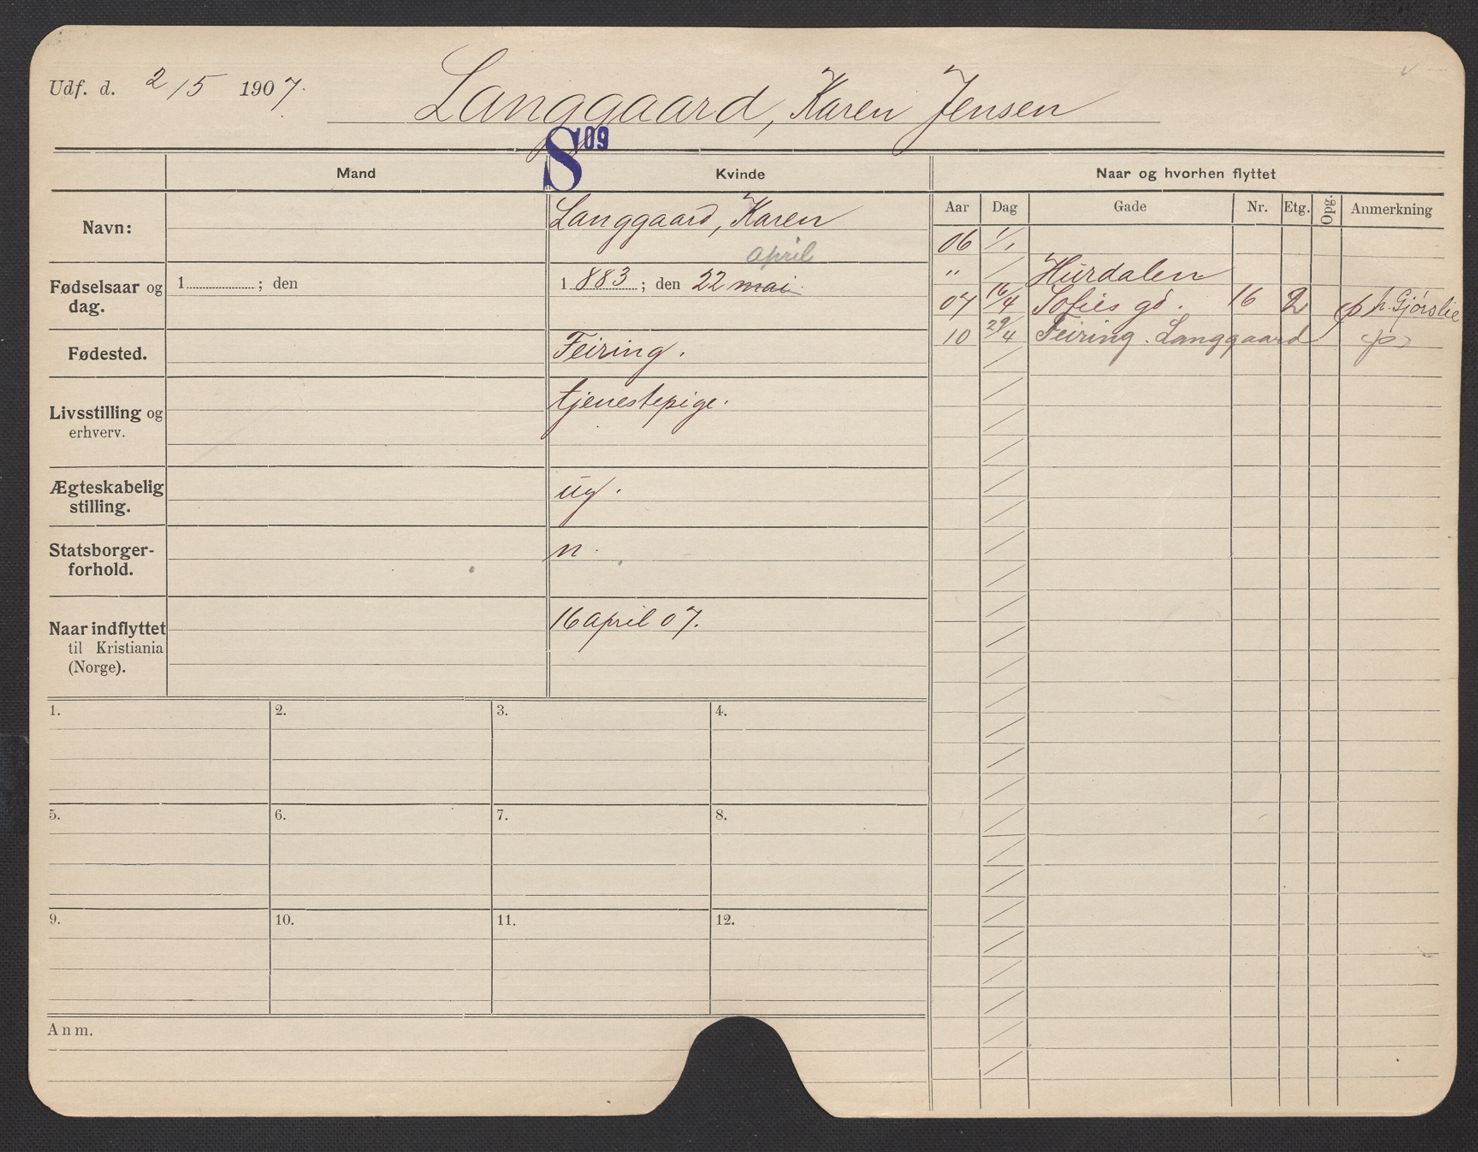 Udf. d. 2/5 1907.
Langgaard, Karen Jensen
S 09
Mand
Kvinde
Naar og hvorhen flyttet
Navn:
Langgaard, Karen
Aar Dag Gade Nr. Etg. Opg. Anmerkning
06 1/1
april
" Hurdalen
Fødselsaar og dag.
1 ; den
1883; den 22 mai
07 16/4 Sofies gd. 16 2 h. Gjørslie
10 29/4 Feiring. Langgaard
Fødested.
Feiring.
Livsstilling og erhverv.
tjenestepige.
Ægteskabelig stilling.
ug.
Statsborger-
forhold.
n.
Naar indflyttet
til Kristiania
(Norge).
16 april 07.
1. 2. 3. 4.
5. 6. 7. 8.
9. 10. 11. 12.
Anm.